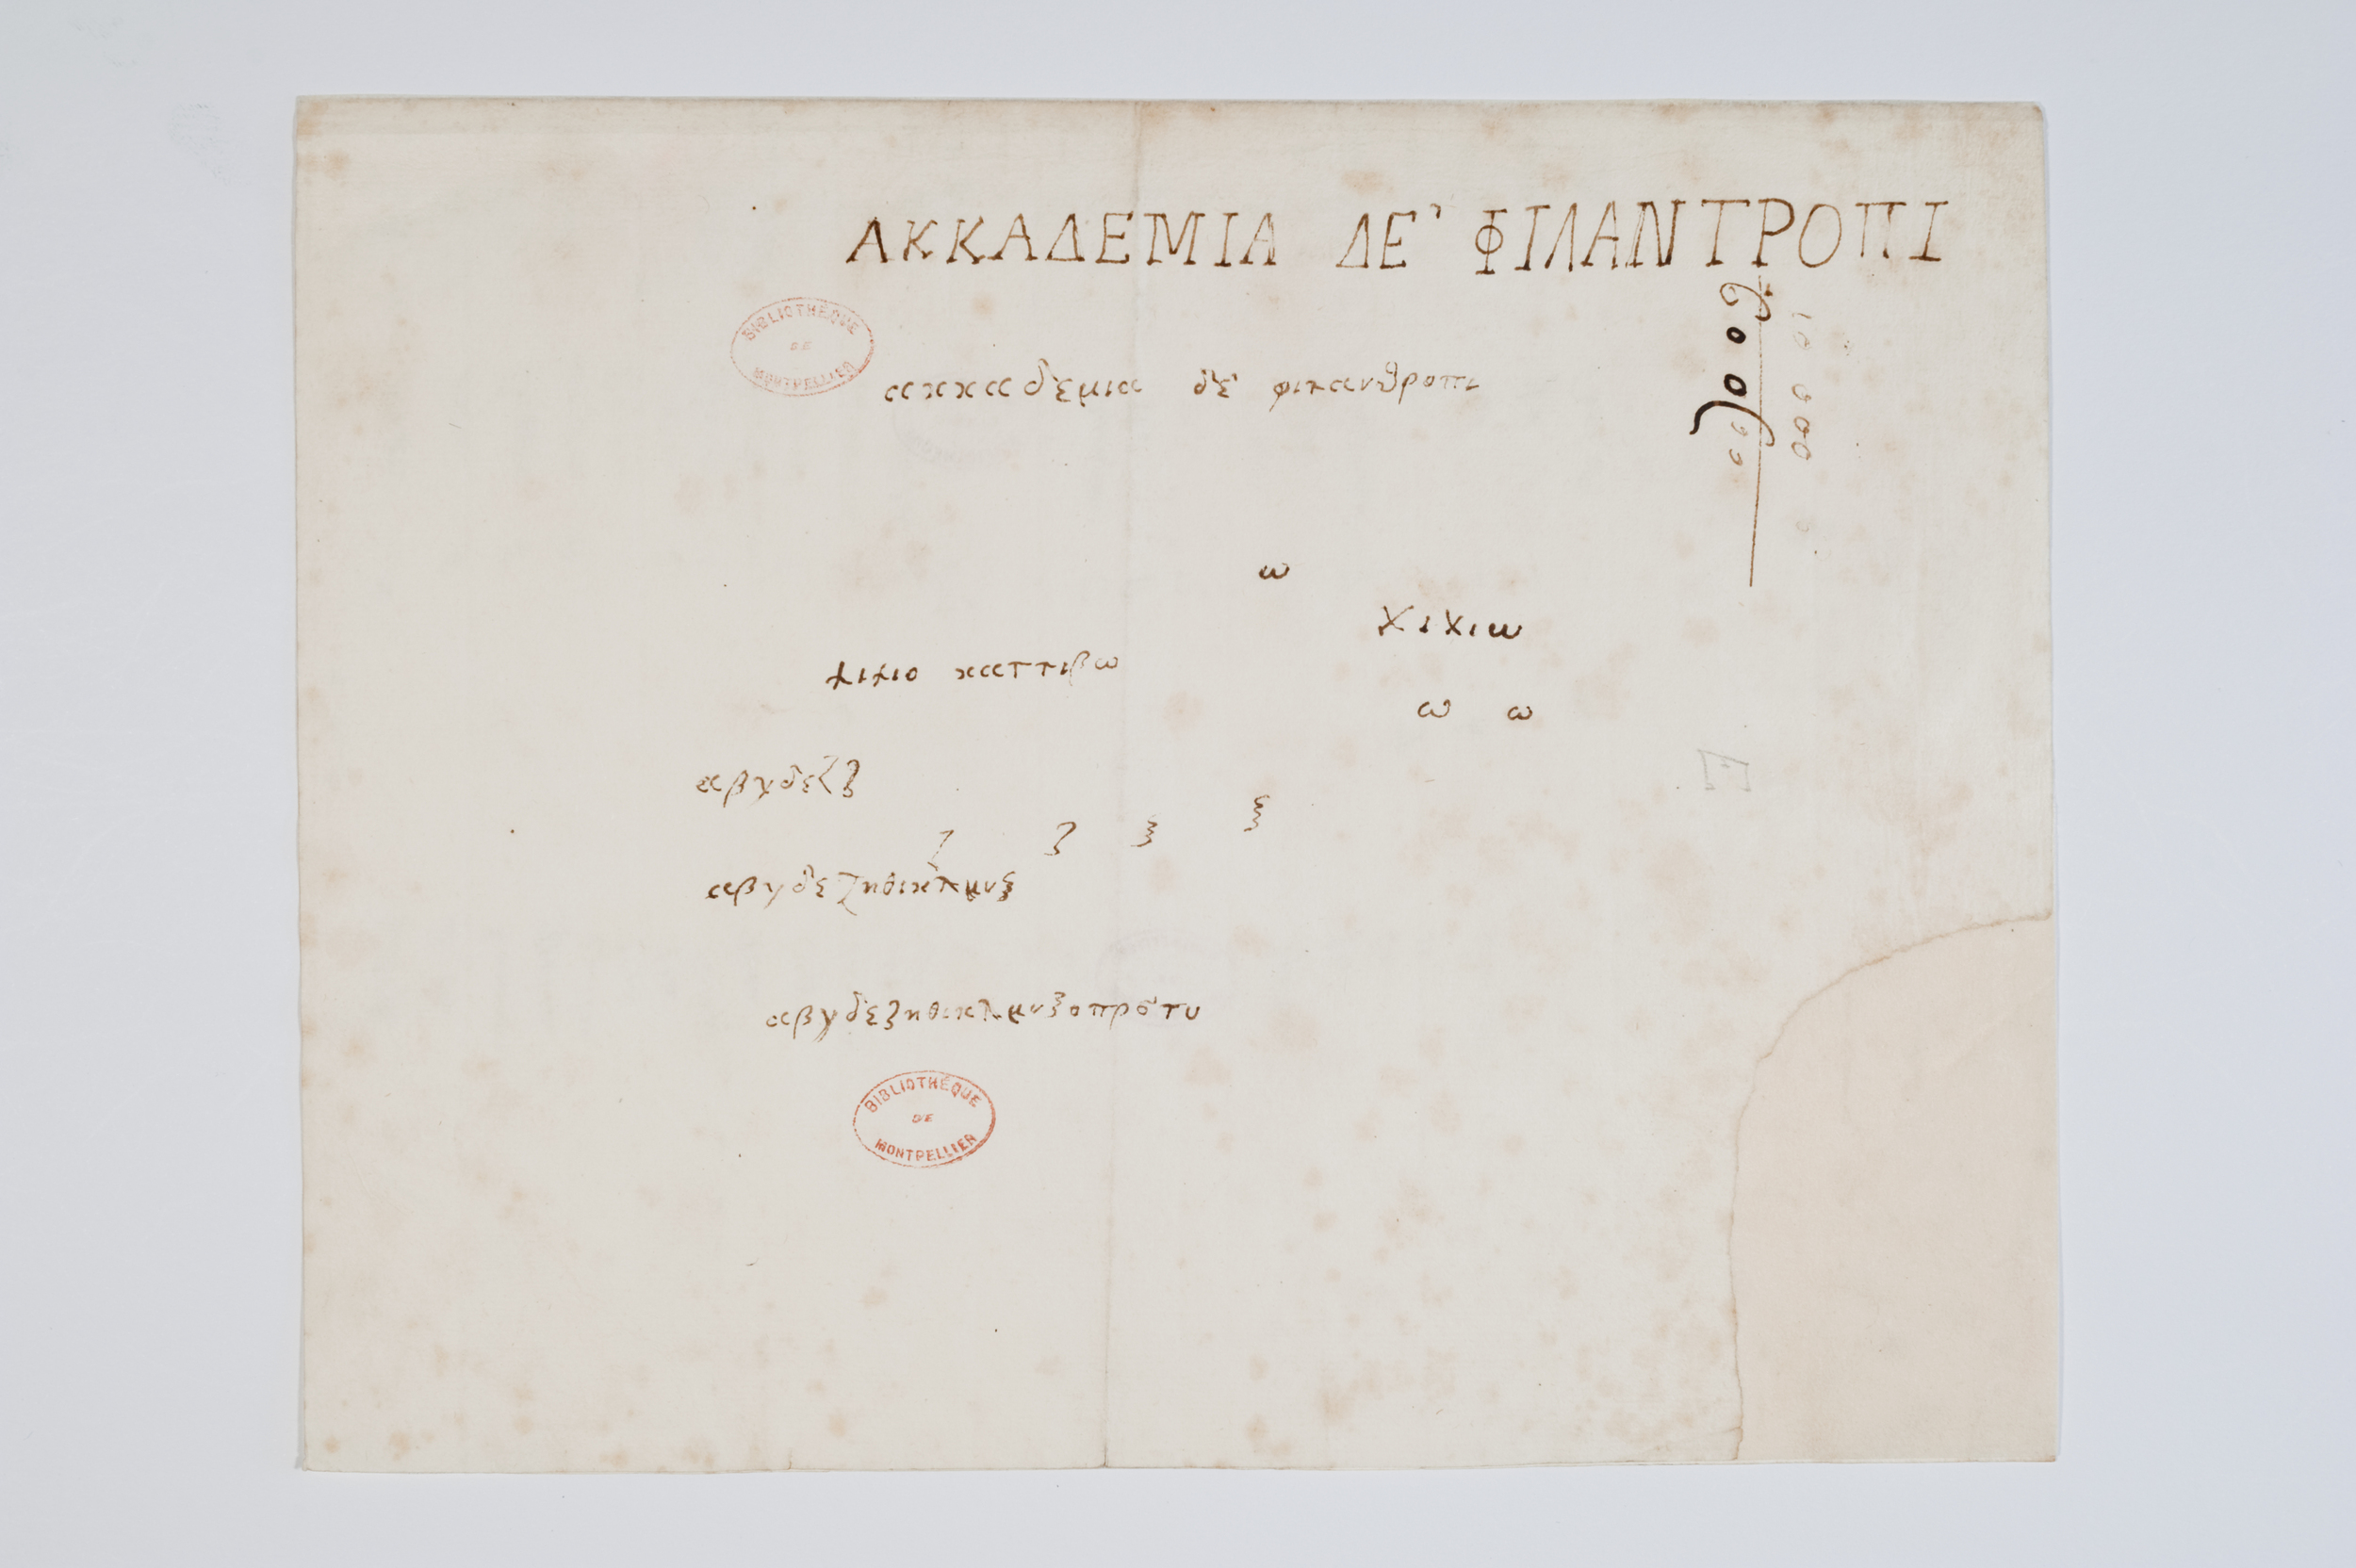 ΑΚΚΑΔΕΜΙΑ ΔΕ' ΦΙΛΑΝΤΡΟΠΙ
BIBLIOTHÈQUE
DE
MONTPELLIER
ακκαδεμια δε' φιλανθροπι
ω
χιχιω
λιλιο καττιβω
ω ω
αβγδεζξ
ζ ξ ξ
αβγδεζηθικλμνξ
αβγδεζηθικλμνξοπρστυ
BIBLIOTHÈQUE
DE
MONTPELLIER